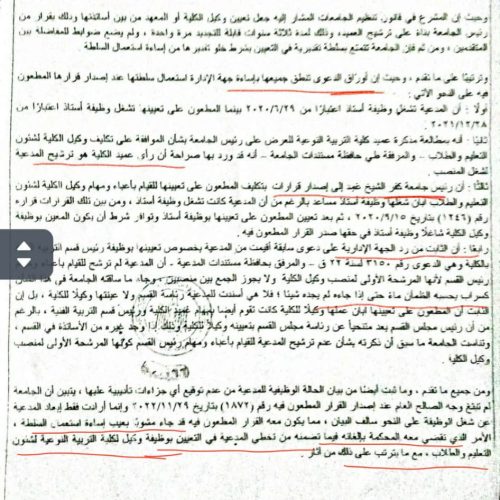 وحيث إن المشرع في قانون تنظيم الجامعات المشار إليه جعل تعيين وكيل الكلية أو المعهد من بين أساتذتها وذلك بقرار من
رئيس الجامعة بناءً على ترشيح العميد، وذلك لمدة ثلاثة سنوات قابلة للتجديد مرة واحدة ، ولم يضع ضوابط للمفاضلة بين
المتقدمين ، ومن ثم فإن الجامعة تتمتع بسلطة تقديرية في التعيين بشرط خلو تقديرها من إساءة استعمال السلطة
وترتيباً على ما تقدم ، وحيث إن أوراق الدعوى تنطق جميعها بإساءة جهة الإدارة استعمال سلطتها عند إصدار قرارها المطعون
فيه على النحو الآتي :
أولاً : أن المدعية تشغل وظيفة أستاذ اعتباراً من ٢٠٢٠/٦/٢٩ بينما المطعون على تعيينها تشغل وظيفة أستاذ اعتباراً من
٢٠٢١/١٢/٢٨
ثانياً : أنه بمطالعة مذكرة عميد كلية التربية النوعية للعرض على رئيس الجامعة بشأن الموافقة على تكليف وكيل الكلية لشئون
التعليم والطلاب – والمرفقة طي حافظة مستندات الجامعة – أنه قد ورد بها صراحة أن رأي عميد الكلية هو ترشيح المدعية
لشغل المنصب .
ثالثاً : أن رئيس جامعة كفر الشيخ عمد إلى إصدار قرارات بتكليف المطعون على تعيينها للقيام بأعباء ومهام وكيل الكلية لشئون
التعليم والطلاب إبان شغلها وظيفة أستاذ مساعد بالرغم من أن المدعية كانت تشغل وظيفة أستاذ ، ومن بين تلك القرارات قراره
رقم (١٢٤٦) بتاريخ ٢٠٢٠/٩/١٥ وحتى تعيينها بوظيفة أستاذ وتوافر شرط أن يكون المعين بوظيفة
وكيل الكلية شاغلاً وظيفة أستاذ في حقها صدر القرار المطعون فيه .
رابعاً : أن الثابت من رد الجهة الإدارية على دعوى سابقة أقيمت من المدعية بخصوص تعيينها بوظيفة رئيس قسم التربية
بالكلية وهي الدعوى رقم ٣١٥٠ لسنة ٢٢ ق – والمرفق بحافظة مستندات المدعية – أن المدعية لم ترشح للقيام بأعباء
رئيس القسم لأنها المرشحة الأولى لمنصب وكيل الكلية ولا يجوز الجمع بين منصبين ، وجاء ما ساقته الجامعة في هذا الشأن
كسراب يحسبه الظمآن ماءً حتى إذا جاءه لم يجده شيئاً ؛ فلا هي أسندت للمدعية رئاسة القسم ولا عينتها وكيلاً للكلية ، بل إن
الثابت أن المطعون على تعيينها إبان عملها وكيلاً للكلية كانت تقوم أيضاً بمهام عميد الكلية ورئيس قسم التربية الفنية ، بالرغم
من أن رئيس مجلس القسم يعد متنحياً عن رئاسة مجلس القسم بتعيينه وكيلاً للكلية وذلك إذا وجد غيره من الأساتذة في القسم ،
وتناست الجامعة ما سبق أن ذكرته بشأن عدم ترشيح المدعية للقيام بأعباء ومهام رئيس القسم كونها المرشحة الأولى لمنصب
وكيل الكلية .
ومن جميع ما تقدم ، وما ثبت أيضاً من بيان الحالة الوظيفية للمدعية من عدم توقيع أي جزاءات تأديبية عليها ، يتبين أن الجامعة
لم تبتغ وجه الصالح العام عند إصدار القرار المطعون فيه رقم (١٨٧٢) بتاريخ ٢٠٢٢/١١/٢٩ وإنما أرادت فقط إبعاد المدعية
عن شغل الوظيفة على النحو سالف البيان ، مما يكون معه القرار المطعون فيه قد جاء مشوباً بعيب إساءة استعمال السلطة ،
الأمر الذي تقضي معه المحكمة بإلغائه فيما تضمنه من تخطي المدعية في التعيين بوظيفة وكيل لكلية التربية النوعية لشئون
التعليم والطلاب ، مع ما يترتب على ذلك من آثار